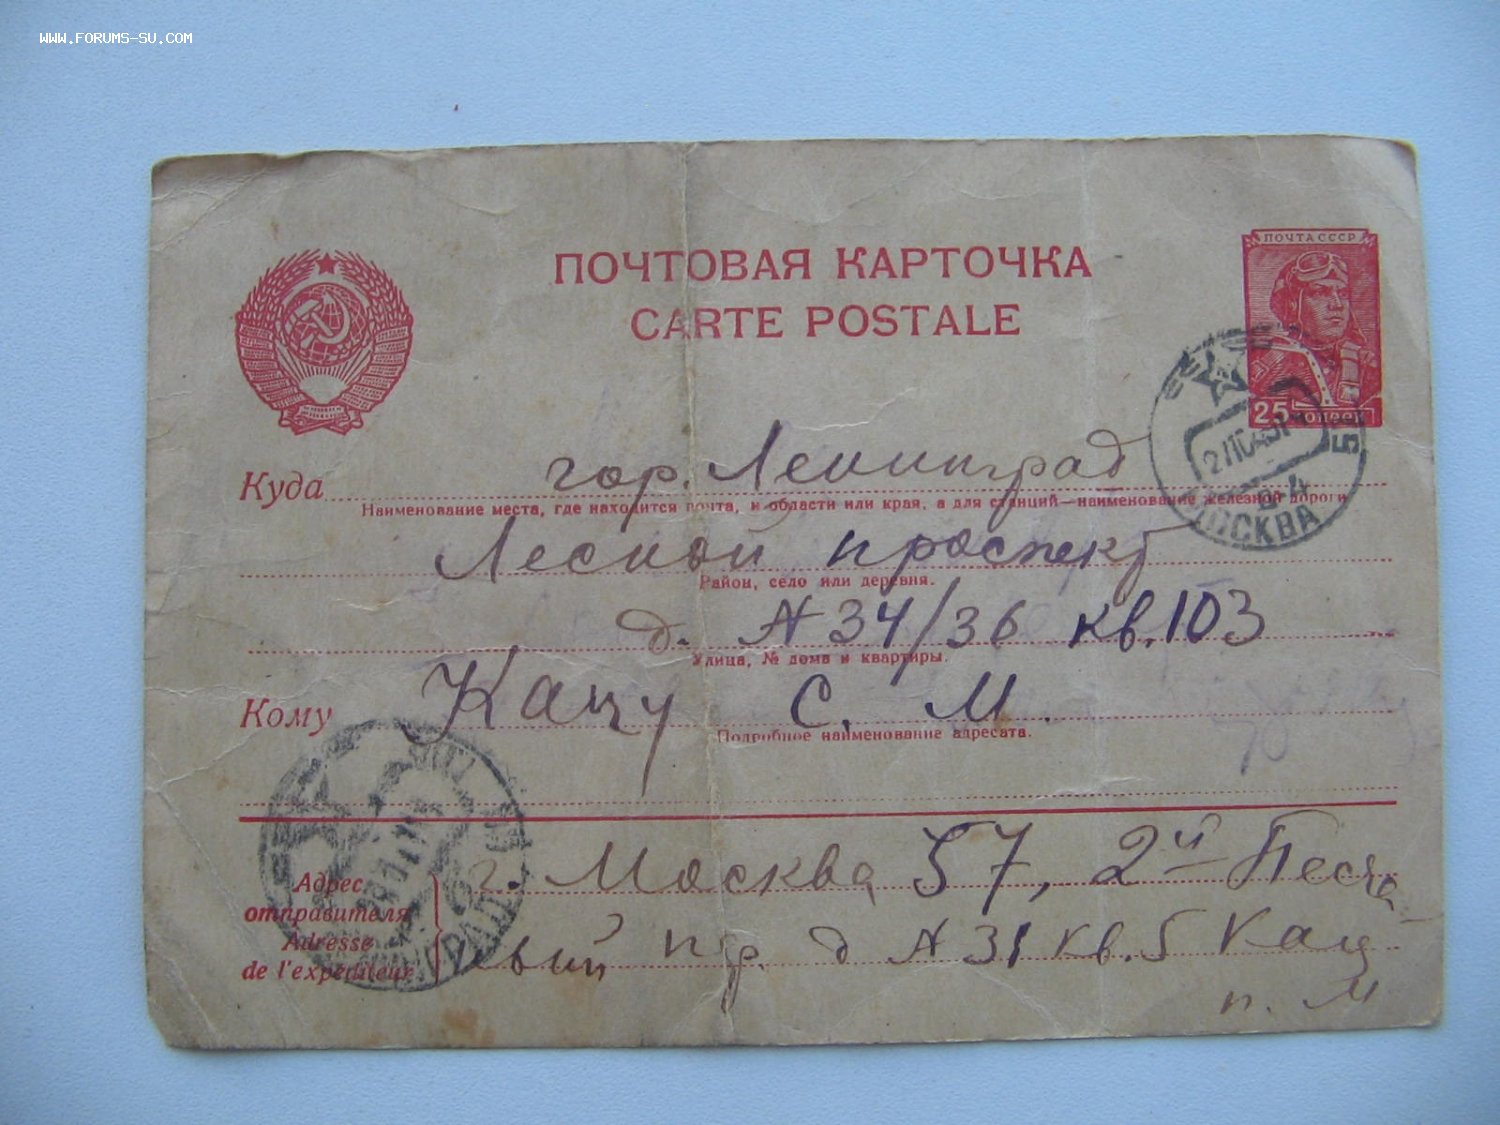 WWW.FORUMS-SU.COM
ПОЧТОВАЯ КАРТОЧКА
CARTE POSTALE
ПОЧТА СССР
25 копеек
Куда гор. Ленинград
Наименование места, где находится почта, и области или края, а для станций—наименование железной дороги
Лесной проспект
Район, село или деревня.
д. № 34/36 кв. 103
Улица, № дома и квартиры.
Кому Кацу С. М.
Подробное наименование адресата.
МОСКВА
Адрес отправителя
Adresse de l'expéditeur
г. Москва 57, 2й Песча-
ный пр. д № 31 кв. 5 Кац
П. М